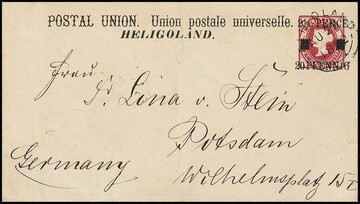 POSTAL UNION. Union postale universelle.
HELIGOLAND.
20 PFENNIG
Frau
Lina v. Stein
Potsdam
Germany
Wilhelmsplatz 15